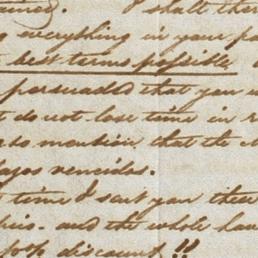 I shall the
everything in your po
best terms possible
persuaded that you w
do not lose time in r
to mention, that the
vencidos.
time I sent you the
and the whole hav
discount !!